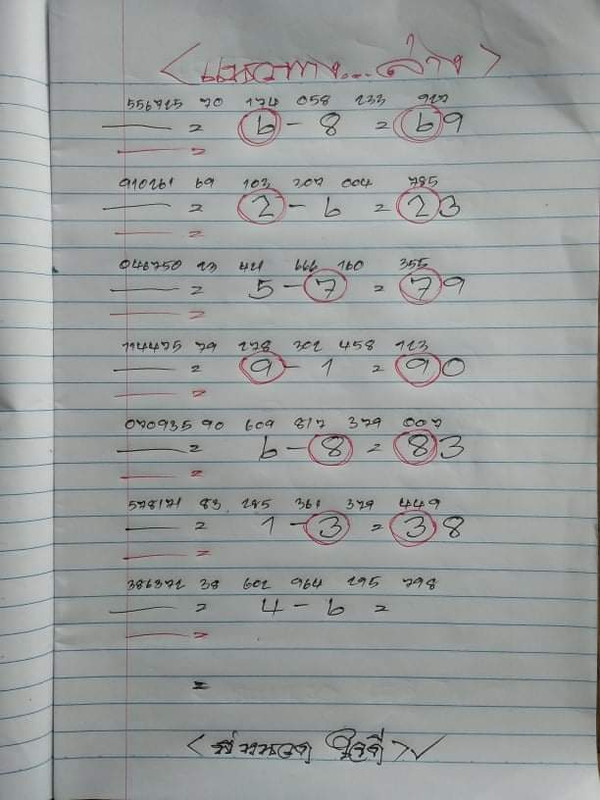 <แนวทาง...ล่าง>
556725 70 174 058 233 927
= 6 - 8 = 69
=
910261 69 103 207 004 785
= 2 - 6 = 23
=
046750 23 421 666 160 355
= 5 - 7 = 79
=
114475 79 278 302 458 123
= 9 - 1 = 90
=
070935 90 609 817 379 007
= 6 - 8 = 83
=
578171 83 285 361 379 449
= 1 - 3 = 38
=
386372 38 602 964 295 798
= 4 - 6 =
=
=